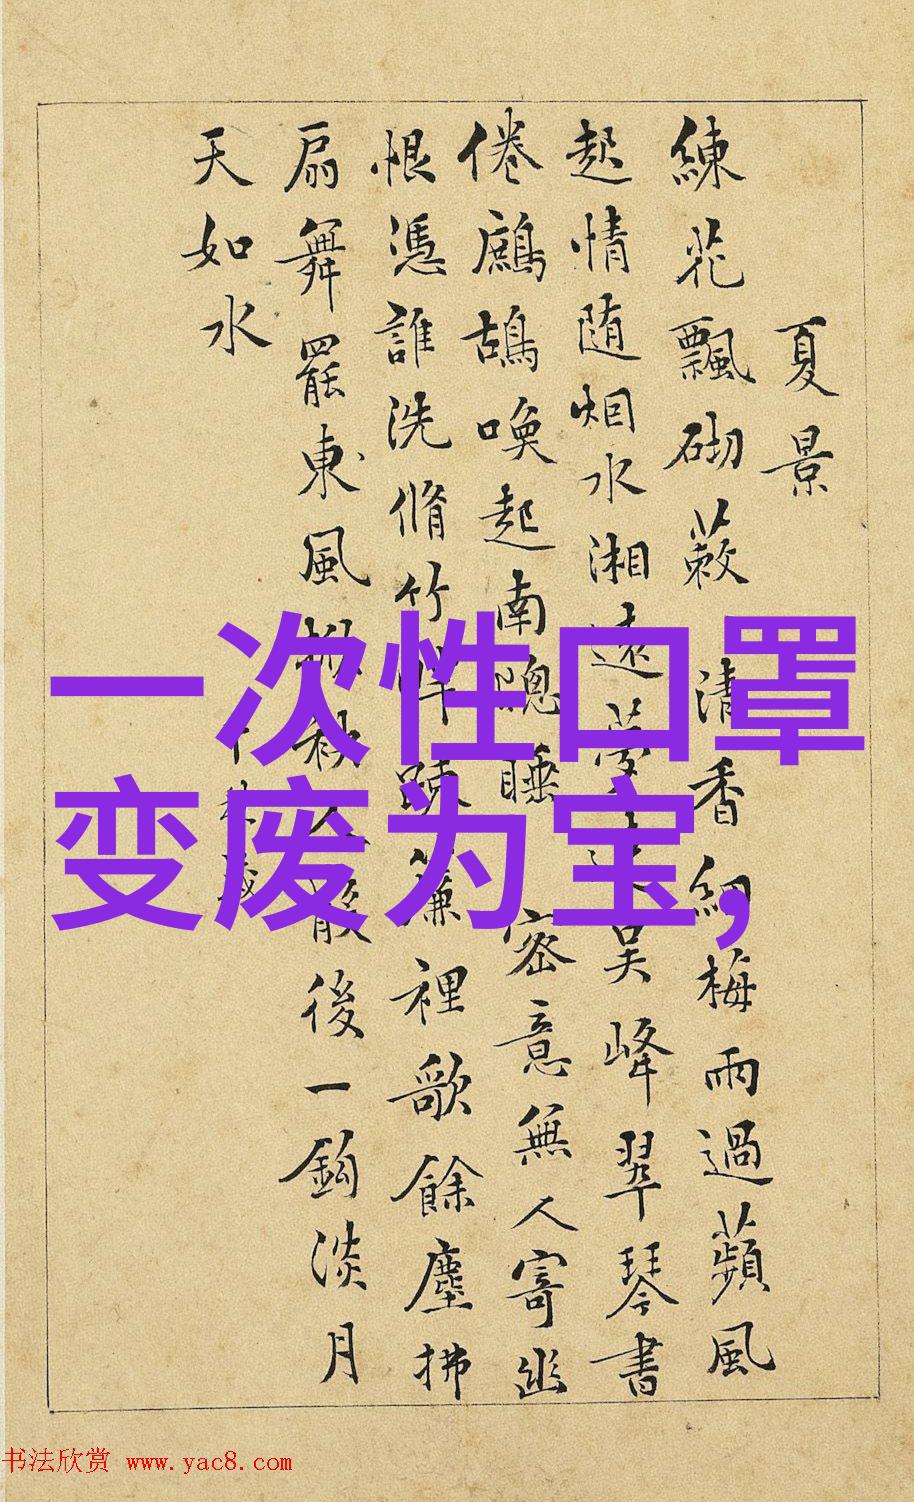 夏景
練花飄砌蔌清香細梅雨過蘋風
起情随烟水湘遠夢吳峰翠琴書
倦鷓鴣喚起南牕睡密意無人寄幽
恨憑誰洗脩竹畔疎簾裡歌餘塵拂
扇舞罷東風人散後一鈎淡月
天如水
一次性口罩
变废为宝,
书法欣赏 www.yac8.com